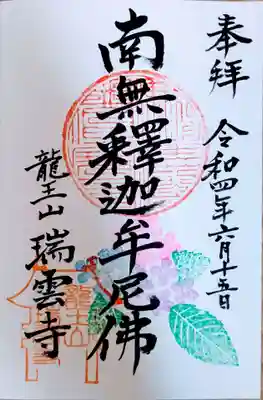 奉拝
令和四年六月十五日
南無釋迦牟尼佛
龍王山
瑞雲寺